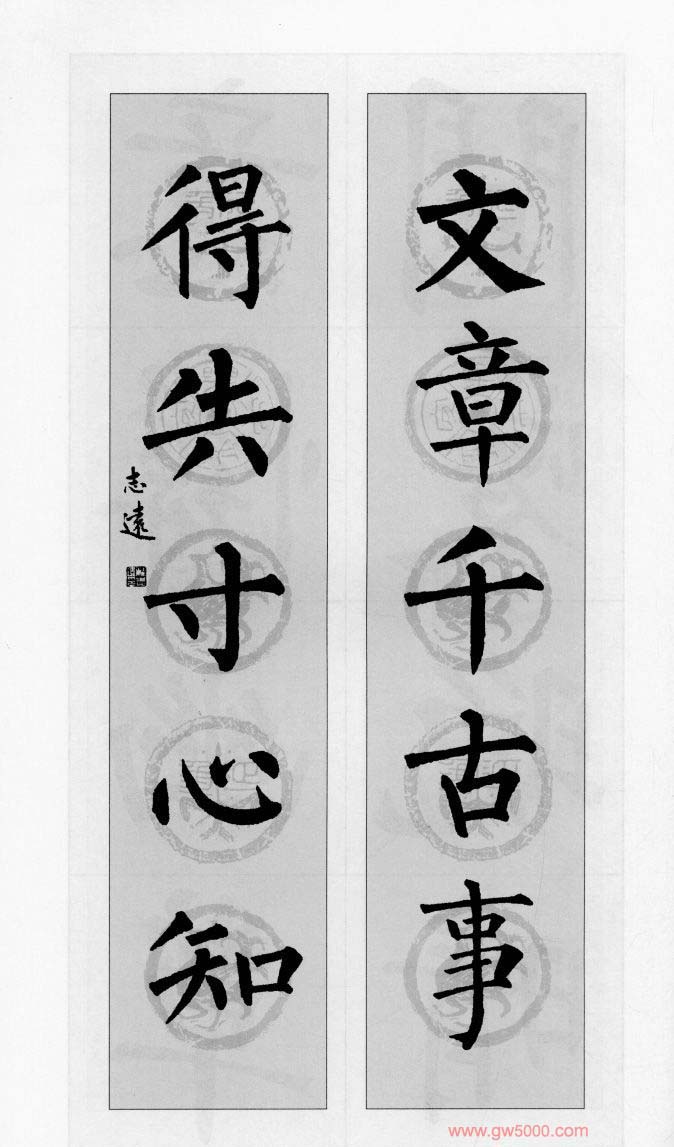 文章千古事
得失寸心知
志遠
www.gw5000.com